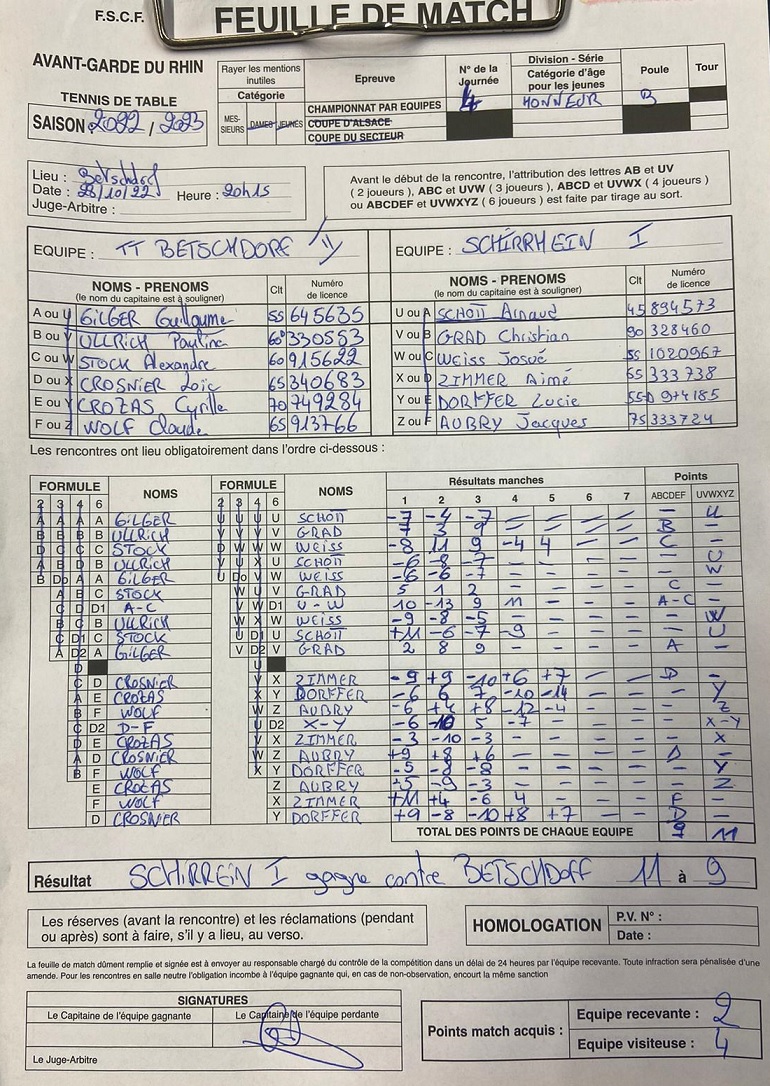 F.S.C.F. FEUILLE DE MATCH
AVANT-GARDE DU RHIN
TENNIS DE TABLE
SAISON 2022 / 2023
Rayer les mentions inutiles
Catégorie
MES-SIEURS DAMES JEUNES
Epreuve
CHAMPIONNAT PAR EQUIPES
COUPE D'ALSACE
COUPE DU SECTEUR
N° de la Journée
4
Division - Série
Catégorie d'âge pour les jeunes
HONNEUR
Poule
B
Tour
Lieu : Betschdorf
Date : 28/10/22 Heure : 20h15
Juge-Arbitre :
Avant le début de la rencontre, l'attribution des lettres AB et UV
( 2 joueurs ), ABC et UVW ( 3 joueurs ), ABCD et UVWX ( 4 joueurs )
ou ABCDEF et UVWXYZ ( 6 joueurs ) est faite par tirage au sort.
EQUIPE : TT BETSCHDORF
EQUIPE : SCHIRRHEIN I
NOMS - PRENOMS (le nom du capitaine est à souligner) Clt Numéro de licence
A ou U GILGER Guillaume 55 645635
B ou V ULLRICH Pauline 60 330553
C ou W STOCK Alexandre 60 915622
D ou X CROSNIER Loïc 65 340683
E ou Y CROZAS Cyrille 70 749284
F ou Z WOLF Claude 65 913766
NOMS - PRENOMS (le nom du capitaine est à souligner) Clt Numéro de licence
U ou A SCHOTT Arnaud 45 894573
V ou B GRAD Christian 90 328460
W ou C WEISS Josué 55 1020967
X ou D ZIMMER Aimé 65 333738
Y ou E DORFFER Lucie
Z ou F AUBRY Jacques 75 333724
Les rencontres ont lieu obligatoirement dans l'ordre ci-dessous :
FORMULE NOMS FORMULE NOMS Résultats manches Points
2 3 4 6 2 3 4 6 1 2 3 4 5 6 7 ABCDEF UVWXYZ
A A A A GILGER U U U U SCHOTT -7 -4 -7 – – – – – U
B B B B ULLRICH V V V V GRAD 7 3 9 – – – – B –
D C C C STOCK D W W W WEISS -8 11 9 -4 5 – – C –
A B D B ULLRICH V U X U SCHOTT -6 -8 -7 – – – – – U
B Db A A GILGER U Do V W WEISS -6 -6 -7 – – – – – W
A B C STOCK W U V GRAD 5 1 2 – – – – C –
C D D1 A-C V W D1 U-W 10 -13 9 11 – – – A-C –
B C B ULLRICH W X W WEISS -9 -8 -5 – – – – – W
C D1 C STOCK U D1 U SCHOTT +11 -6 -7 -9 – – – – U
A D2 A GILGER V D2 V GRAD 2 8 9 – – – – A –
D U
C D CROSNIER V X ZIMMER -9 +9 -10 +6 +7 – – D –
A E CROZAS X Y DORFFER -6 6 7 -10 -14 – – – Y
B F WOLF V Z AUBRY -6 +4 +8 -12 -4 – – – Z
C D2 D-F U D2 X-Y -6 -10 5 -7 – – – – X-Y
D E CROZAS V X ZIMMER -3 -10 -3 – – – – – X
A D CROSNIER W Z AUBRY +9 +8 +6 – – – – D –
B F WOLF X Y DORFFER -5 -8 -8 – – – – – Y
E CROZAS Z AUBRY +5 -9 -3 – – – – – Z
F WOLF X ZIMMER +11 +4 -6 4 – – – F –
D CROSNIER Y DORFFER +9 -8 -10 +8 +7 – – D –
TOTAL DES POINTS DE CHAQUE EQUIPE 9 11
Résultat SCHIRREIN I gagne contre BETSCHDOFF 11 à 9
Les réserves (avant la rencontre) et les réclamations (pendant
ou après) sont à faire, s'il y a lieu, au verso.
HOMOLOGATION
P.V. N° :
Date :
La feuille de match dûment remplie et signée est à envoyer au responsable chargé du contrôle de la compétition dans un délai de 24 heures par l'équipe recevante. Toute infraction sera pénalisée d'une
amende. Pour les rencontres en salle neutre l'obligation incombe à l'équipe gagnante qui, en cas de non-observation, encourt la même sanction
SIGNATURES
Le Capitaine de l'équipe gagnante Le Capitaine de l'équipe perdante
Le Juge-Arbitre
Points match acquis :
Equipe recevante : 2
Equipe visiteuse : 4